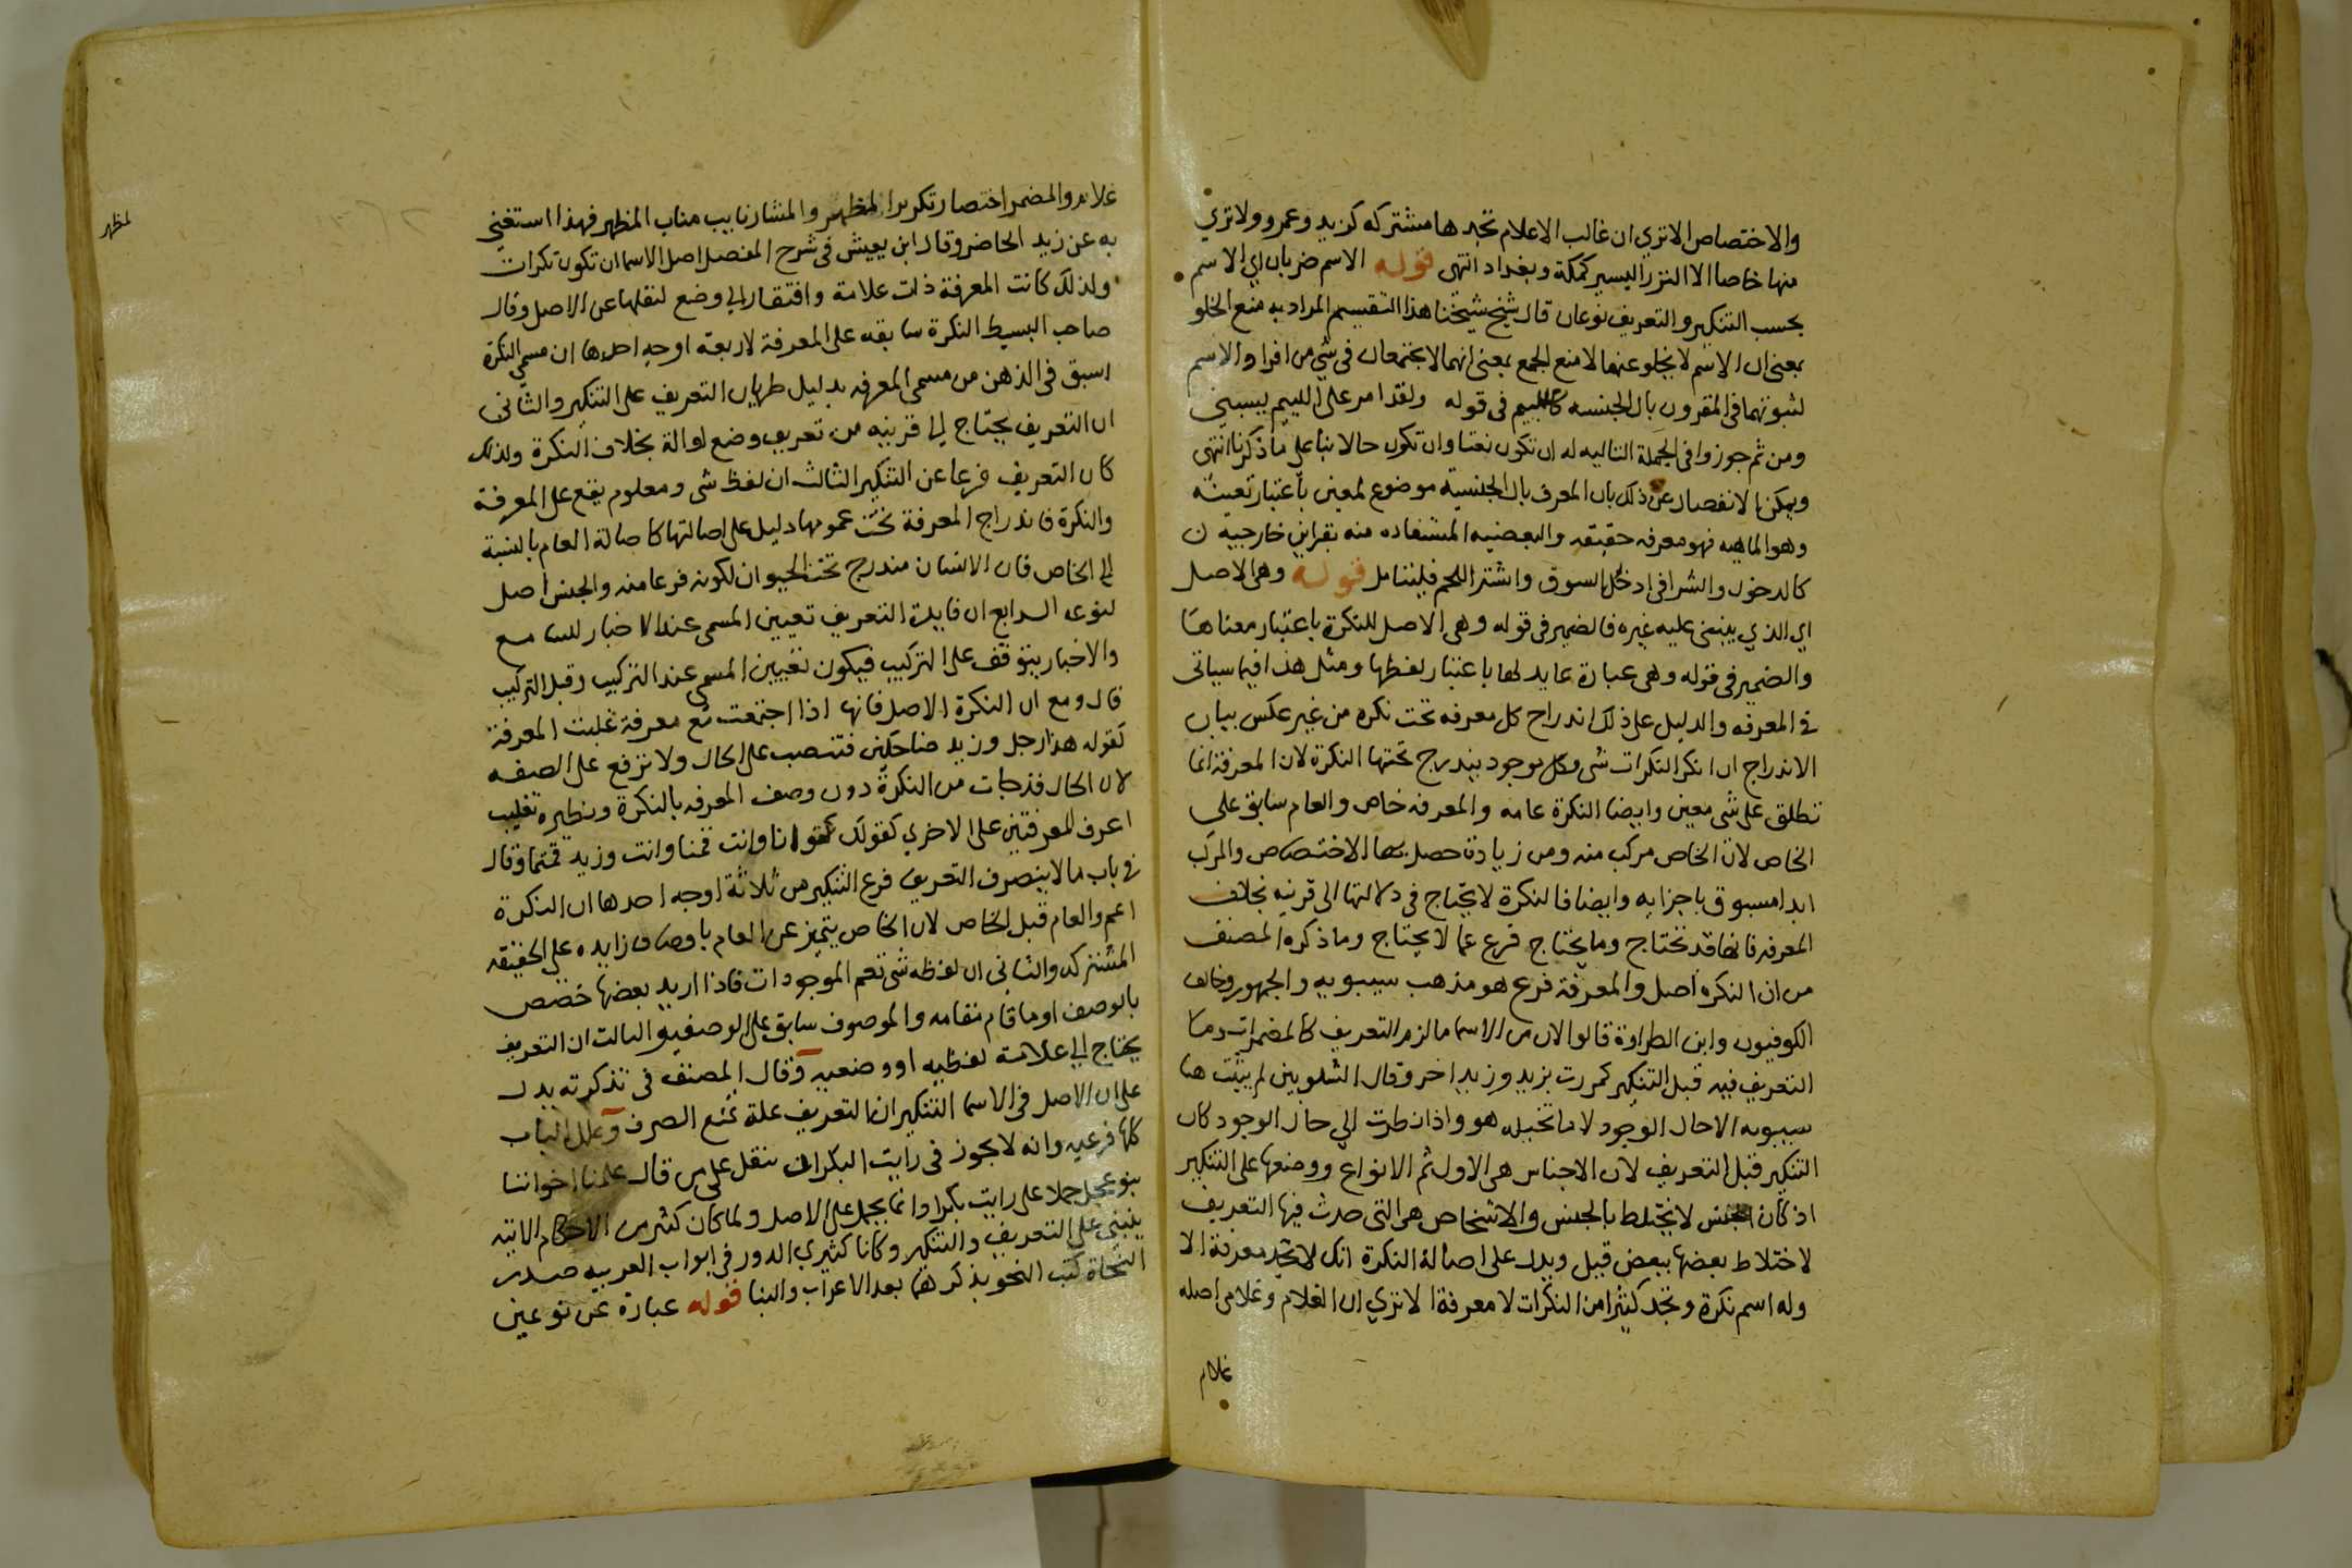 والاختصاص الا تري ان غالب الاعلام تجدها مشتركه كزيد وعمرو ولا تري
منها خاصا الا النزر اليسير كمكة وبغداد انتهى قوله الاسم ضربان اي الاسم
بحسب التنكير والتعريف نوعان قال شيخ شيخنا هذا التقسيم المراد به منع الخلو
بمعنى ان الاسم لا يخلو عنهما لا منع الجمع بمعنى انهما لا يجتمعان في شي من افراد الاسم
لثبوتهما في المقرون بال الجنسه كاللييم في قوله ولقد امر على اللييم يسبني
ومن ثم جوزوا في الجملة التاليه له ان تكون نعتا وان تكون حالا بنا على ما ذكرنا انتهى
ويمكن الانفصال عن ذلك بان المعرف بال الجنسية موضوع لمعين باعتبار تعينه
وهو الماهيه فهو معرفه حقيقه والبعضيه المستفاده منه بقراين خارجيه ن
كالدخول والشرا في ادخل السوق واشتر اللحم فليتامل قوله وهي الاصل
اي الذي ينبني عليه غيره فالضمير في قوله وهي الاصل للنكرة باعتبار معناها
والضمير في قوله وهي عبارة عايد لها باعتبار لفظها ومثل هذا فيما سياتي
في المعرفه والدليل على ذلك اندراج كل معرفه تحت نكره من غير عكس بيان
الاندراج ان انكر النكرات شي وكل موجود يندرج تحتها النكرة لان المعرفة انما
تطلق على شي معين وايضا النكرة عامه والمعرفه خاص والعام سابق على
الخاص لان الخاص مركب منه ومن زيادة حصل بها الاختصاص والمركب
ابدا مسبوق باجزايه وايضا فالنكرة لا تحتاج في دلالتها الى قرينه بخلاف
المعرفه فانها قد تحتاج وما يحتاج فرع عما لا يحتاج وما ذكره المصنف
من ان النكره اصل والمعرفة فرع هو مذهب سيبويه والجمهور وخالف
الكوفيون وابن الطراوة قالوا لان من الاسما ما لزم التعريف كالمضمرات وما
التعريف فيه قبل التنكير كمررت بزيد وزيد اخر وقال الشلوبين لم يثبت هنا
سيبويه الا حال الوجود لا ما تخيله هو واذا نظرت الي حال الوجود كان
التنكير قبل التعريف لان الاجناس هي الاول ثم الانواع ووضعها على التنكير
اذ كان الجنس لا يختلط بالجنس والاشخاص هي التي حدث فيها التعريف
لاختلاط بعضها ببعض قيل ويدل على اصالة النكرة انك لا تجد معرفة الا
وله اسم نكرة وتجد كثيرا من النكرات لا معرفة الا تري ان الغلام وغلامي اصله
غلام
غلام والمضمر اختصار تكرير المظهر والمشار نايب مناب المظهر فهذا استغني
مظهر
به عن زيد الحاضر وقال ابن يعيش في شرح المفصل اصل الاسما ان تكون نكرات
ولذلك كانت المعرفة ذات علامة وافتقار الي وضع لنقلها عن الاصل وقال
صاحب البسيط النكرة سابقه على المعرفة لاربعة اوجه احدها ان مسمي النكرة
اسبق في الذهن من مسمى المعرفه بدليل طريان التعريف على التنكير والثاني
ان التعريف يحتاج الي قرينه من تعريف وضع او الة بخلاف النكرة ولذلك
كان التعريف فرعا عن التنكير الثالث ان لفظ شي ومعلوم يقع على المعرفة
والنكرة فاندراج المعرفة تحت عمومها دليل على اصالتها كاصالة العام بالنسبة
الي الخاص فان الانسان مندرج تحت الحيوان لكونه فرعا منه والجنس اصل
لنوعه الرابع ان فايدة التعريف تعيين المسمى عند الاخبار للسامع
والاخبار يتوقف على التركيب فيكون تعيين المسمى عند التركيب وقبل التركيب
قال ومع ان النكرة الاصل فانها اذا اجتمعت مع معرفة غلبت المعرفة
كقوله هذا رجل وزيد ضاحكين فتنصب على الحال ولا ترفع على الصفه
لان الحال قد جات من النكرة دون وصف المعرفه بالنكرة ونظيره تغليب
اعرف المعرفتين على الاخري كقولك انا وانت قمنا وانت وزيد قمتما وقال
في باب ما لا ينصرف التعريف فرع التنكير من ثلاثة اوجه احدها ان النكرة
اعم والعام قبل الخاص لان الخاص يتميز عن العام باوصاف زايده على الحقيقه
المشتركه والثاني ان لفظه شي تعم الموجودات فاذا اريد بعضها خصص
بالوصف او ما قام مقامه والموصوف سابق على الوصفيه الثالث ان التعريف
يحتاج الي علامة لفظيه او وضعيه وقال المصنف في تذكرته يدل
على ان الاصل في الاسما التنكير ان التعريف علة تمنع الصرف وعلل الباب
كلها فرعيه وانه لا يجوز في رايت البكر ان تنقل على من قال علمنا اخواننا
بنو عجل حملا على رايت بكرا وانما يحمل على الاصل ولما كان كثير من الاحكام الاتيه
ينبني على التعريف والتنكير وكانا كثيري الدور في ابواب العربيه صدر
النحاة كتب النحو بذكرهما بعد الاعراب والبنا قوله عبارة عن نوعين